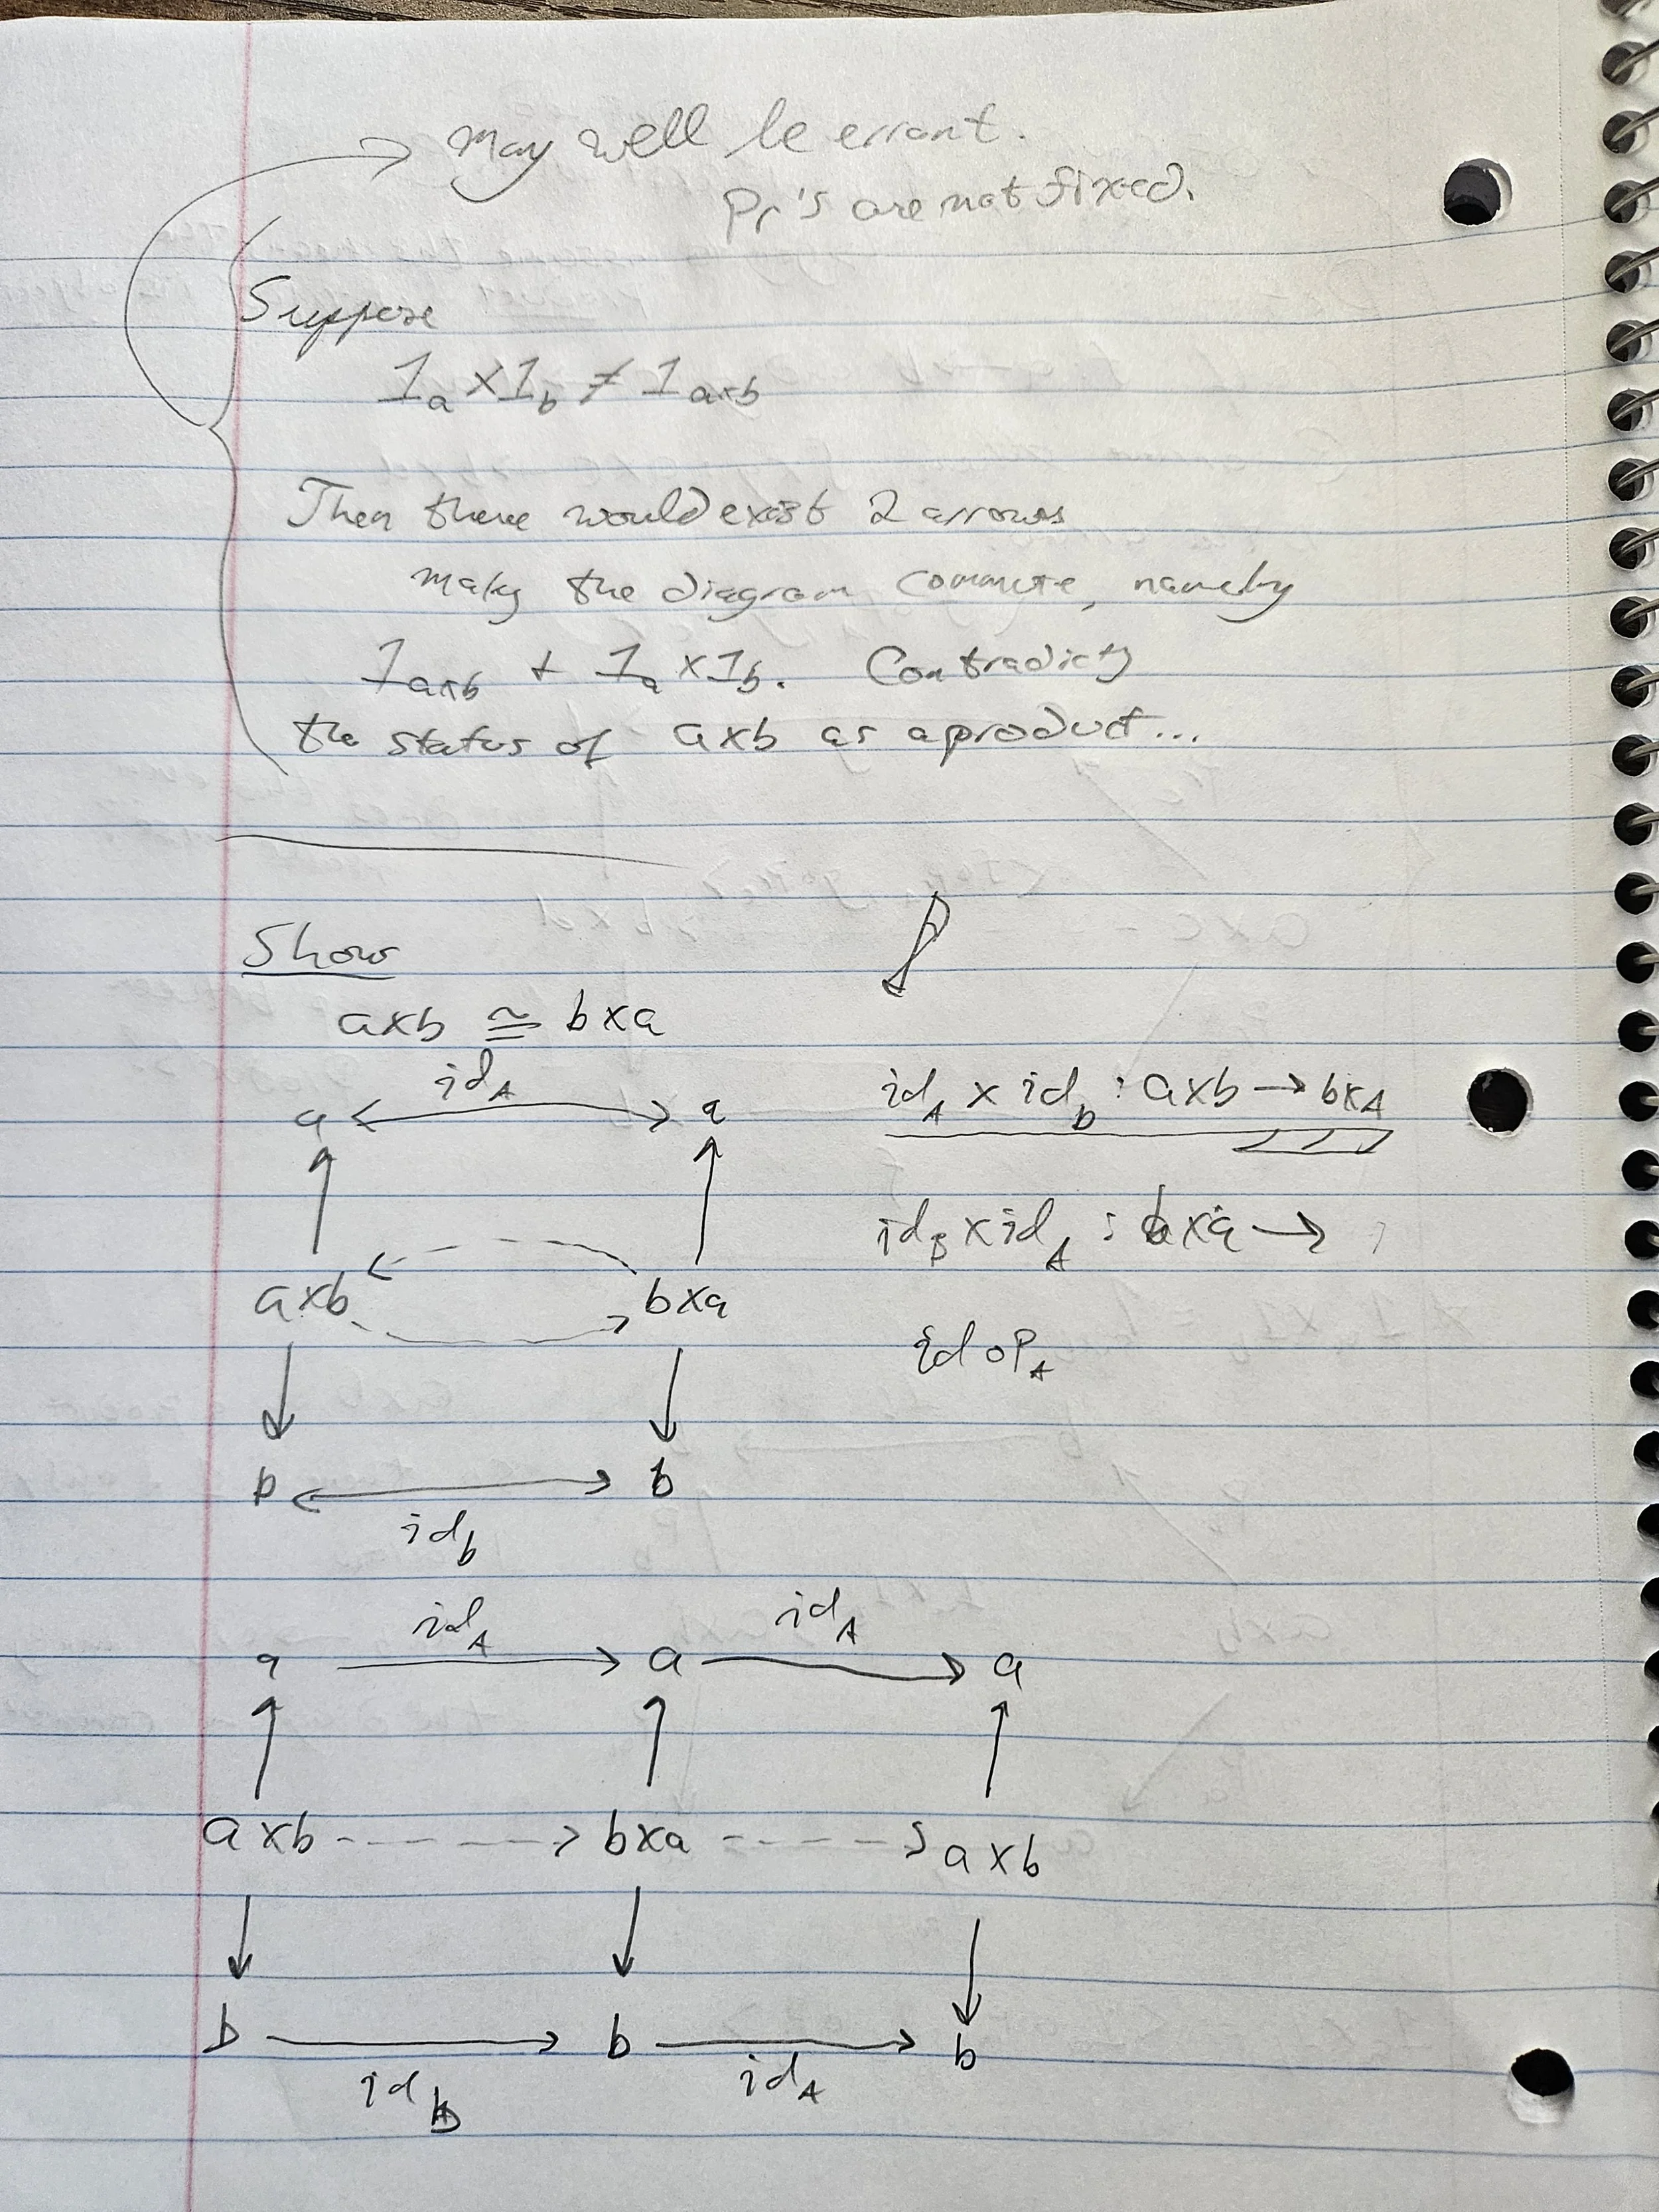 may well be errant.
Pr's are not fixed.
Suppose
1a × 1b ≠ 1a×b
Then there would exist 2 arrows
making the diagram commute, namely
1a×b + 1a × 1b. Contradicts
the status of a×b as a product...
Show
a×b ≅ b×a
idA
a a
idA × idb : a×b → b×A
idB × idA : b×a →
a×b b×a
id ∘ PA
b b
idb
idA idA
a a a
a×b b×a a×b
b b b
idb idA